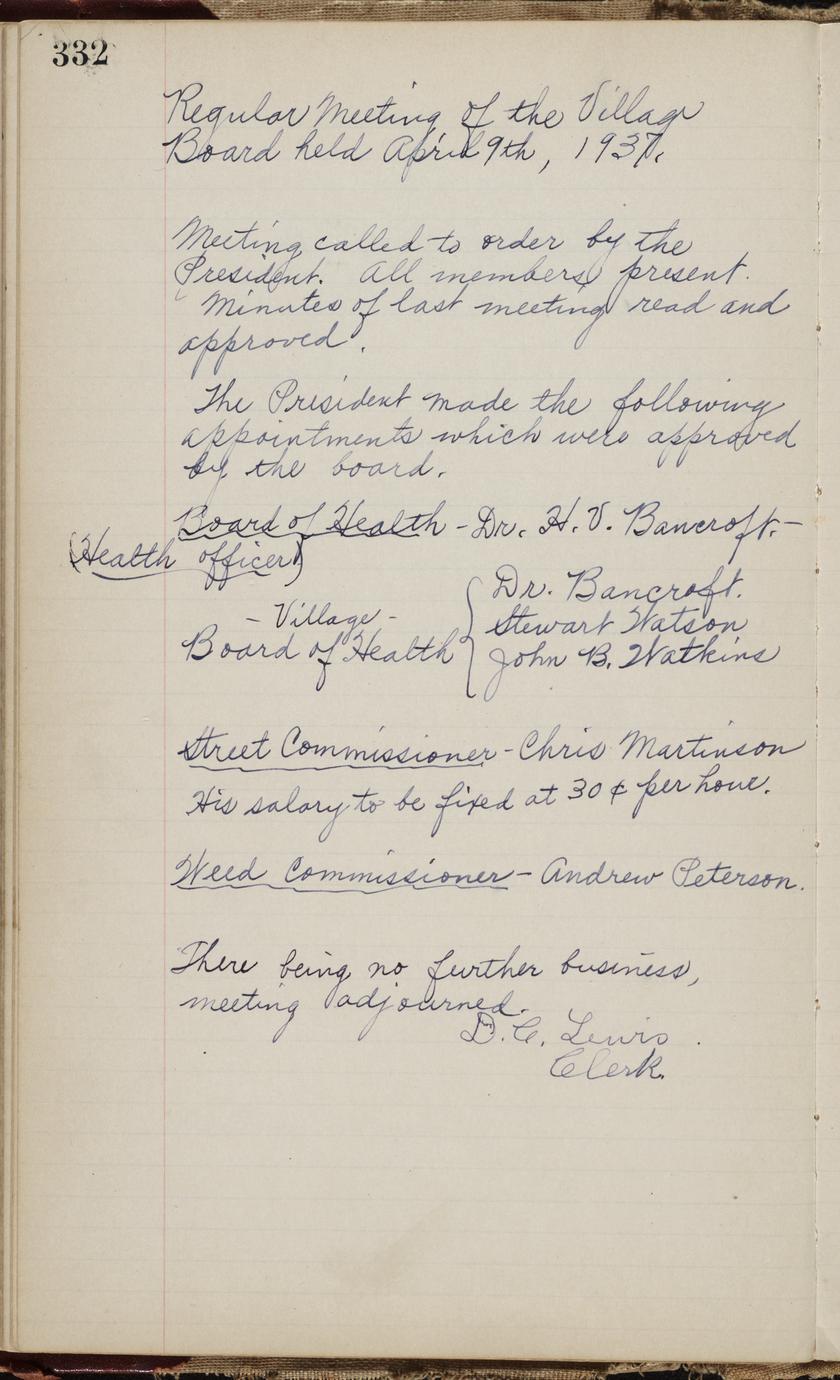 332
Regular Meeting of the Village
Board held April 9th, 1937.
Meeting called to order by the
President. All members present.
Minutes of last meeting read and
approved.
The President made the following
appointments which were approved
by the board.
Board of Health - Dr. H. V. Bancroft. -
(Health officer)
- Village -
Board of Health { Dr. Bancroft.
Stewart Watson
John B. Watkins
Street Commissioner - Chris Martinson
His salary to be fixed at 30 ¢ per hour.
Weed Commissioner - Andrew Peterson.
There being no further business,
meeting adjourned.
D. C. Lewis.
Clerk.